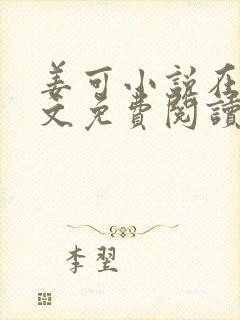 姜可小说在
文免費閱讀
李翌